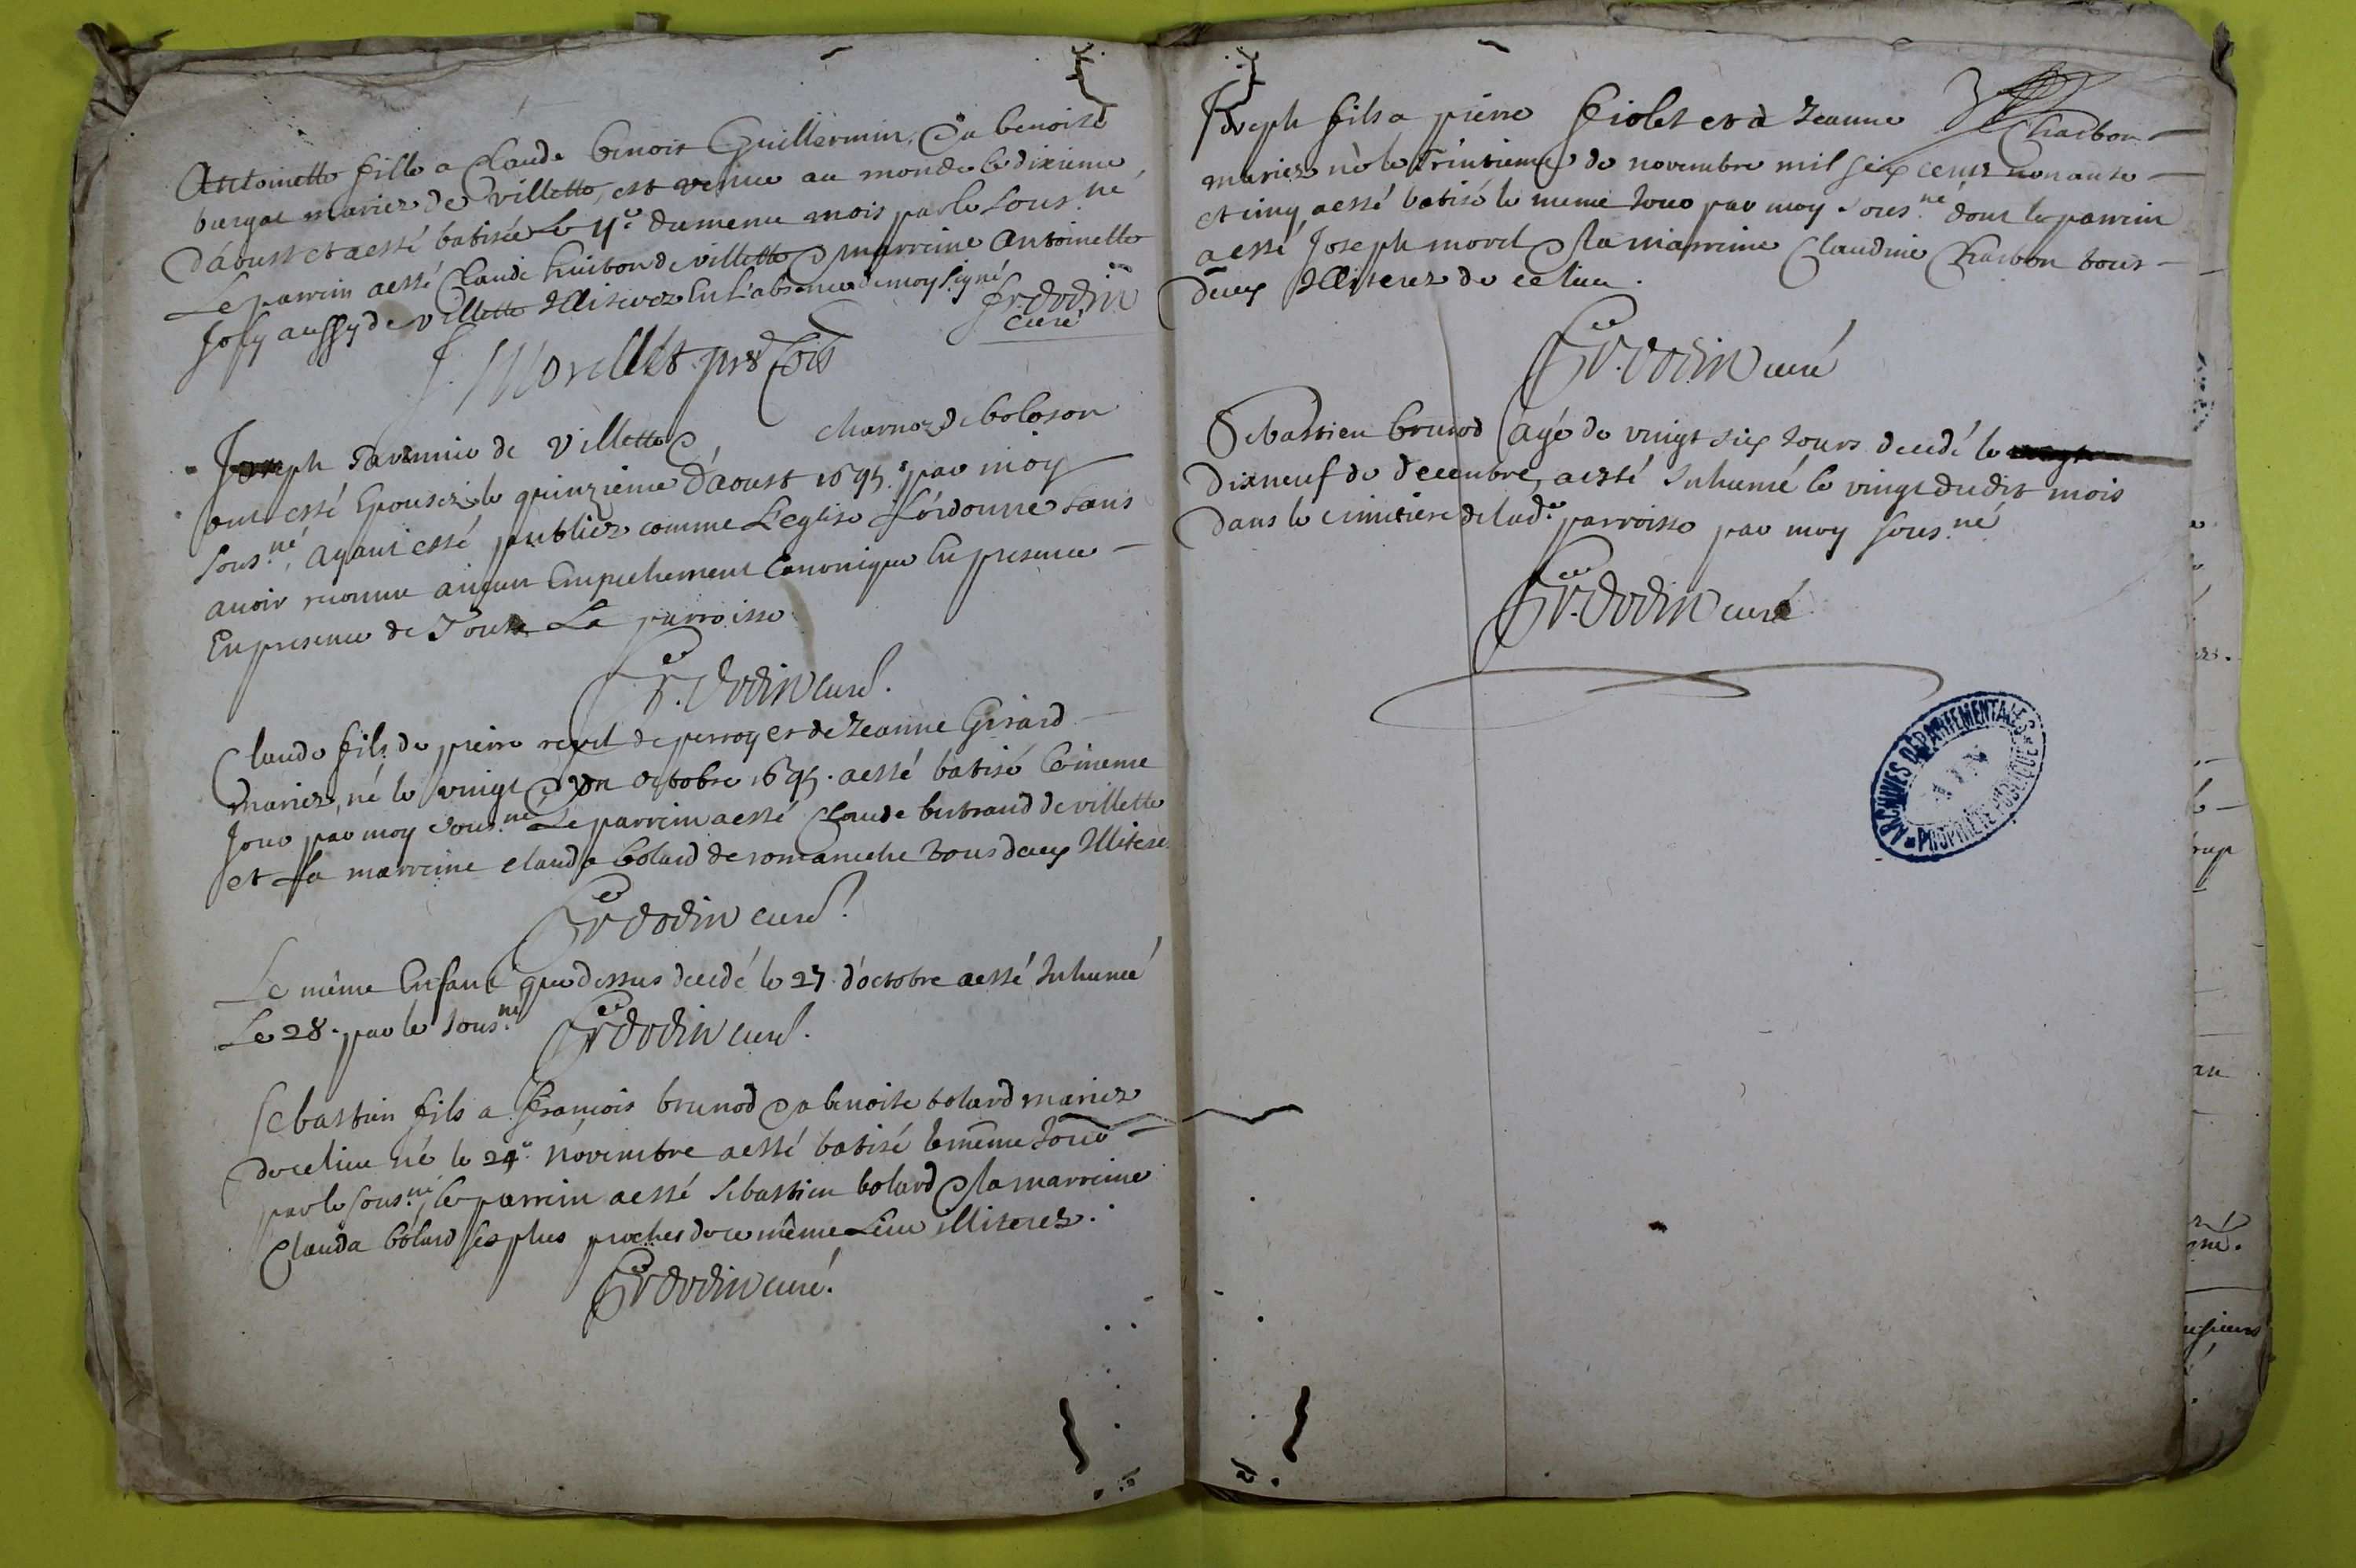 Antoinette fille a Claude benoit Guillermin, & a benoite
burgat mariez de villette, est venue au monde le dixieme
d'aoust et a esté batisée le 11e du meme mois par le sous.né
Le parrein a esté Claude huiton de villette & marreine Antoinette
Joly aussy de villette illiterez En l'absence de moy signé
fr. dodin
curé
J. Morellet. pr
Joseph de villette & charnoz de boloson
ont esté Epousez le quinzieme d'aoust 1695. par moy
sous.né, ayant esté publiez comme L'eglise L'ordonne sans
avoir reconnu aucun Empechement Canonique En presence
En presence de Toute La parroisse
fr. dodin curé.
Claude fils de pierre revel de perroy et de Jeanne Girard
mariez, né le vingt & un octobre 1695. a esté batisé le meme
Jour par moy sous.né Le parrein a esté Claude bertrand de villette
et La marreine clauda bolard de romaneche tous deux Illitere
fr dodin curé.
Le même Enfant que dessus decedé le 27. d'octobre a esté Inhumé
Le 28. par le sous.né fr dodin curé.
Sebastien fils a francois brunod & a benoite bolard mariez
de ce lieu né le 24e. novembre a esté batisé le même Jour
par le sous.né, le parrein a esté sebastien bolard & la marreine
Clauda bolard ses plus proches de ce même Lieu illiterez.
fr dodin curé.
Joseph fils a pierre fiolet et a Jeanne Charbon
mariez né le Trintieme de novembre mil six cents nonante
et cinq a esté batisé le meme Jour par moy sous.né dont le parrein
a esté Joseph morel & la marreine Claudine Charbon tous
deux Illiterez de ce lieu.
fr. dodin curé
Sebastien brunod agé de vingt six Jours decedé le
dixneuf de decembre, a esté Inhumé le vingt dudit mois
dans le cimitiere de lade. parroisse par moy sous.né
fr. dodin curé
ARCHIVES DÉPARTEMENTALES
AIN
PROPRIÉTÉ PUBLIQUE